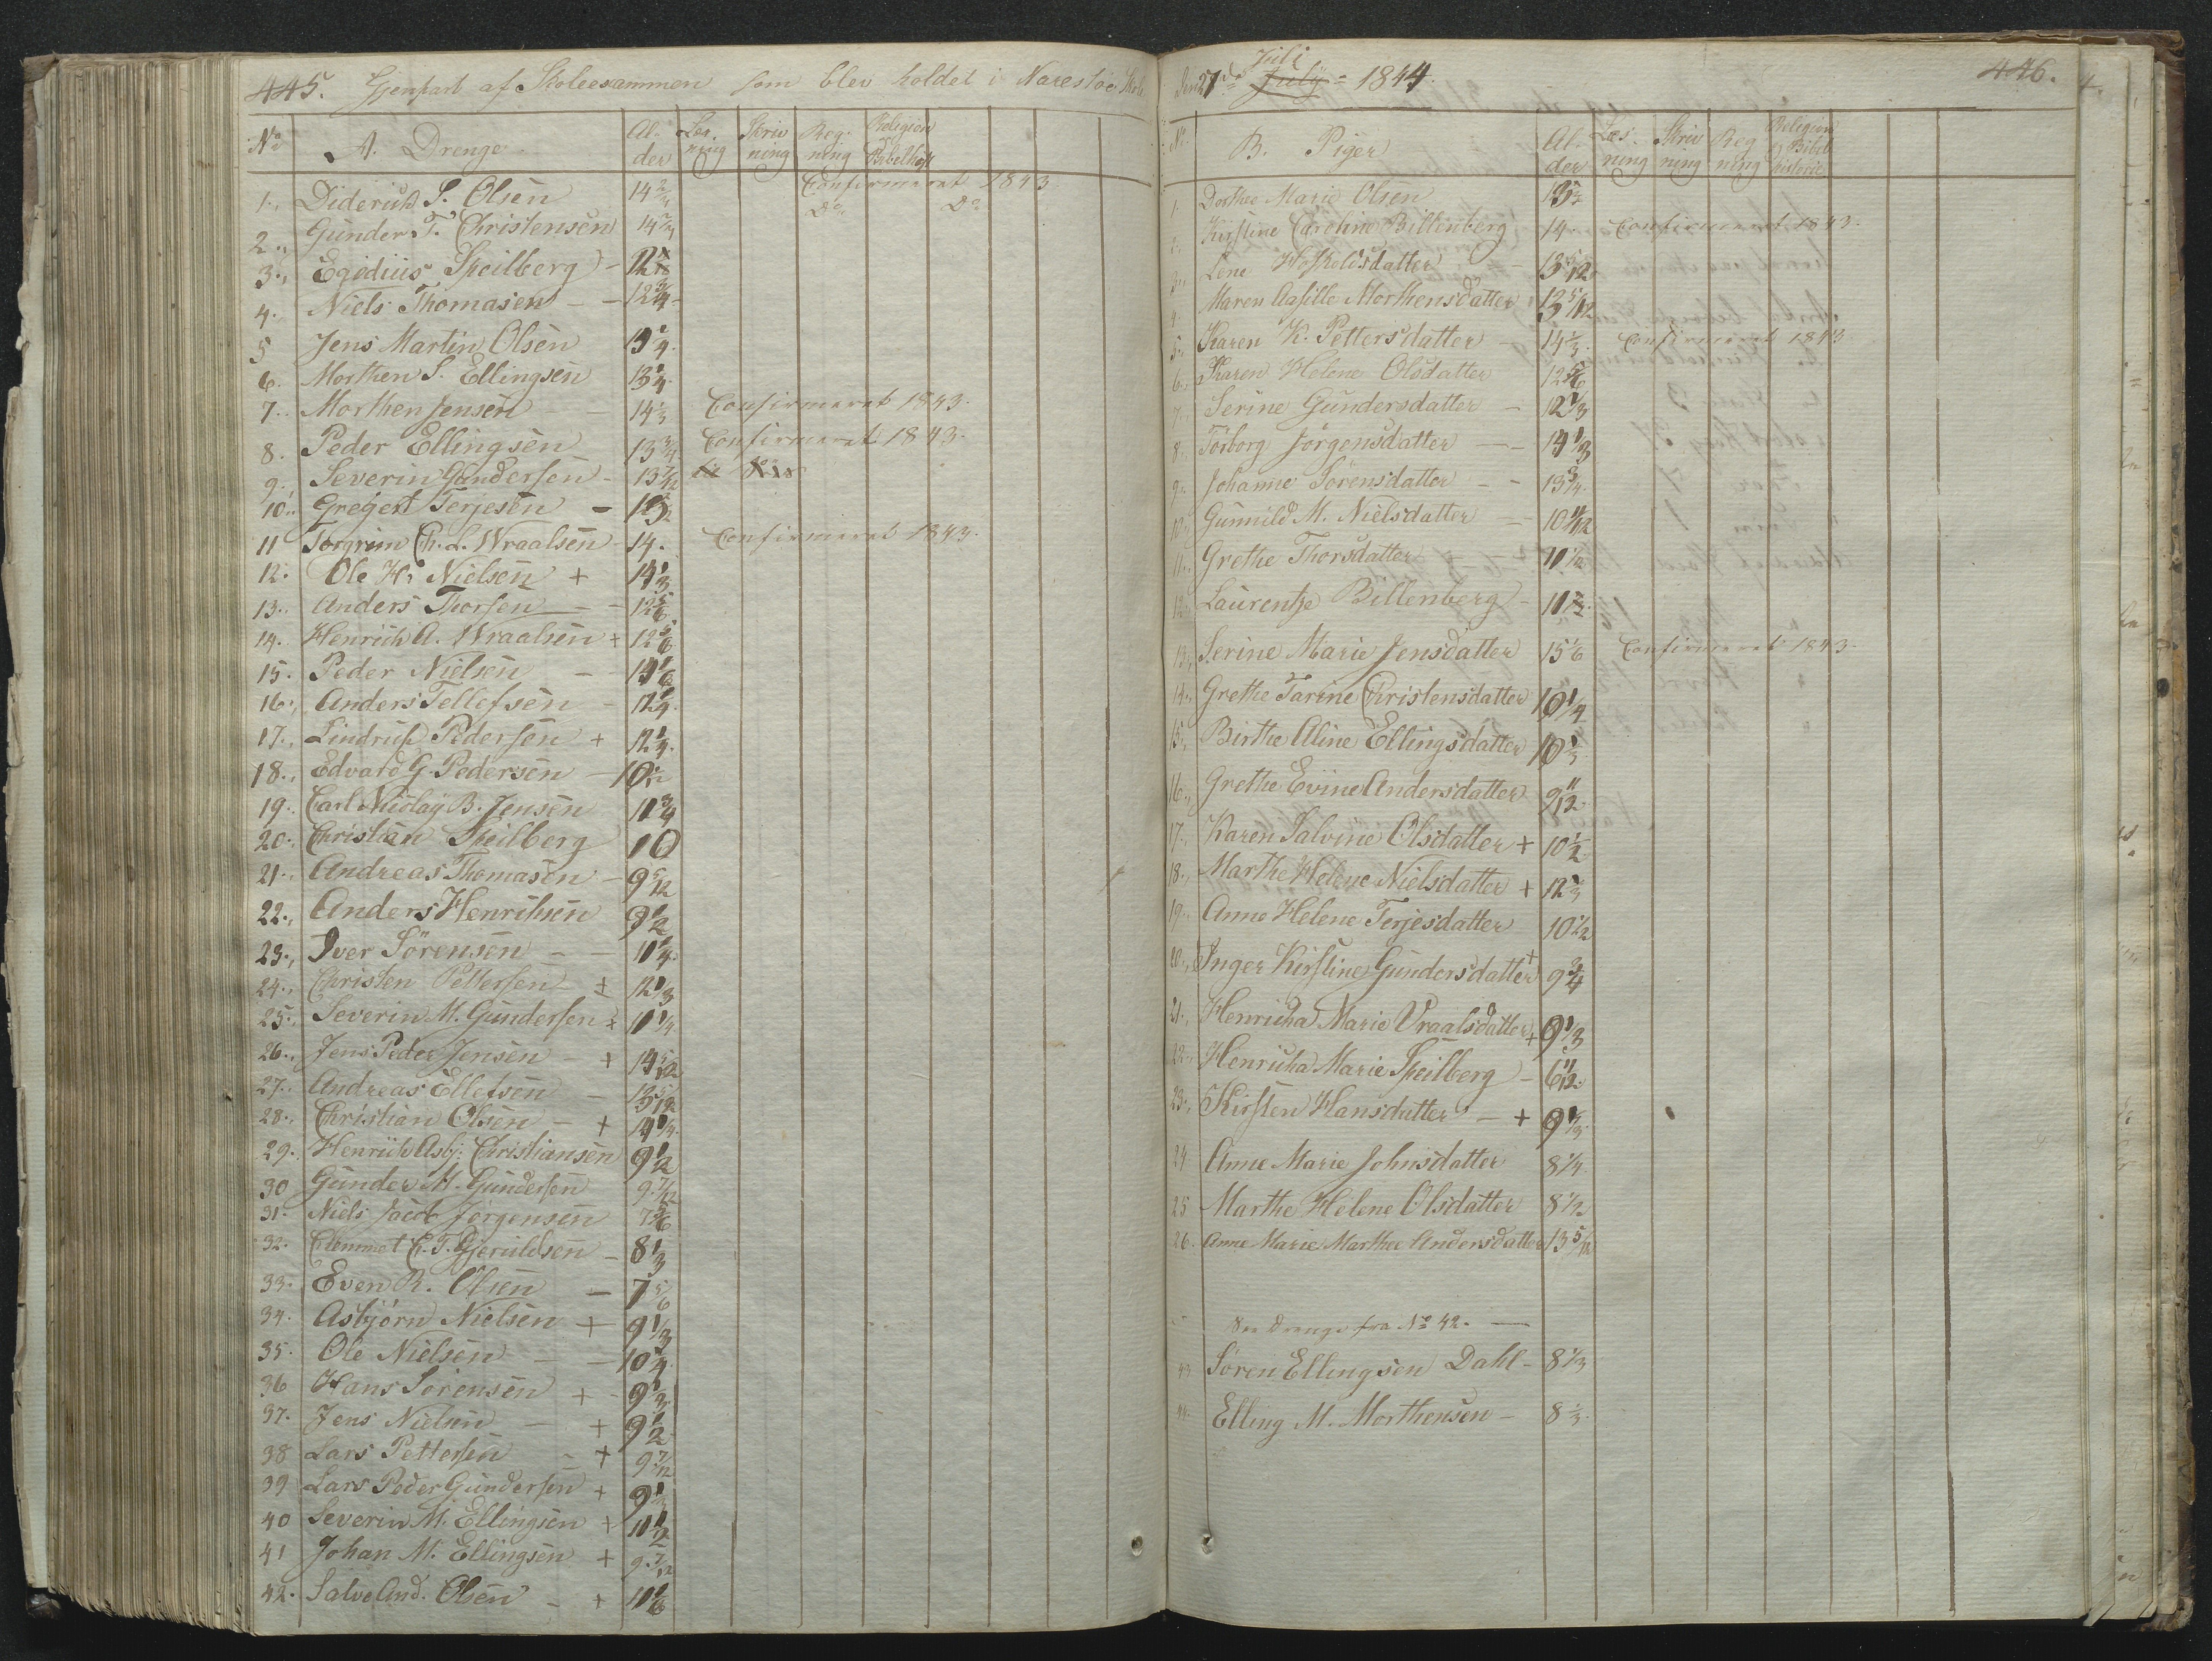 445. Gjenpart af Skoleexammen som blev holdet i Narestøe Skole
No A. Drenge Al-der Læs-ning Skriv ning Reg-ning Religion Bibelhist
1. Diderich S. Olsen 14 Confirmeret 1843
2. Gunder T. Christensen 14 Do Do
3. Egidius Speilberg - 12
4. Niels Thomasen - - 12 3/4
5 Jens Martin Olsen 13 1/4
6. Morthen S. Ellingsen 13 1/4
7. Morthen Jensen - 14 1/3 Confirmeret 1843.
8. Peder Ellingsen 13 3/4 Confirmeret 1843.
9. Severin Gundersen - 13 7/12
10. Gregert Terjesen -
11 Torgrim Ch. L. Wraalsen 14. Confirmeret 1843.
12. Ole H. Nielsen + 14 1/3
13. Anders Thorsen - 12 5/6
14. Henrich A. Wraalsen + 12 5/6
15. Peder Nielsen - 14 1/6
16. Anders Tellefsen - 12 1/4
17. Lindrup Pedersen + 12 1/4
18. Edvard G. Pedersen - 10
19. Carl Nicolay B. Jensen 11 3/4
20. Christian Speilberg 10
21. Andreas Thomasen - 9 5/12
22. Anders Henriksen 9 1/2
23. Iver Sörensen - - 11 1/4
24. Christen Pettersen + 12 1/3
25. Severin M. Gundersen + 11 1/4
26. Jens Peder Jensen - + 14 5/12
27. Andreas Ellefsen - 13 5/12
28. Christian Olsen - + 14 1/4
29. Henrich Asbj: Christiansen 9 1/2
30 Gunder M. Gundersen 9 7/12
31. Niels Jacob Jørgensen 7 5/6
32. Clemmet C. T. Gjeruldsen - 8 1/3
33. Even R. Olsen - 7 5/6
34. Asbjørn Nielsen + 9 1/3
35. Ole Nielsen - - 10 1/4
36 Hans Sørensen + - 9 1/3
37. Jens Nielsen - + 9 1/2
38 Lars Pettersen - + 9 7/12
39 Lars Peder Gundersen + 9 1/3
40 Severin M. Ellingsen + 11 1/2
41 Johan M. Ellingsen + 9 7/12
42. Salve And. Olsen - + 11 1/6
Juli
Den 27de July - 1844. 446.
No. B. Piger Al-der Læs-ning Skriv ning Reg ning Religion og Bibel historie
1. Dorthee Marie Olsen
2. Kirstine Caroline Billenberg 14. Confirmeret 1843.
3. Lene Hoskoldsdatter - 13 5/12
4. Maren Aasille Morthensdatter 13 5/12
5. Karen K. Pettersdatter - 14 1/3. Confirmeret 1843
6. Karen Helene Olsdatter 12 5/6
7. Serine Gundersdatter - 12 1/3
8. Torborg Jörgensdatter - 14 1/3
9. Johanne Sörensdatter - - 13 3/4
10. Gunnild M. Nielsdatter - 10 11/12
11. Grethe Thorsdatter - 11 1/2
12. Laurentze Billenberg - 11
13. Serine Marie Jensdatter 15 1/6 Confirmeret 1843.
14. Grethe Tarine Christensdatter 10 1/4
15. Birthe Aline Ellingsdatter 10 1/3
16. Grethe Evine Andersdatter 9 11/12
17. Karen Salvine Olsdatter + 10 1/2
18. Marthe Helene Nielsdatter + 12
19. Anne Helene Terjesdatter 10 1/2
20. Inger Kirstine Gundersdatter + 9 3/4
21. Henricha Marie Vraalsdatter + 9 1/3
22. Henricha Marie Speilberg - 6 11/12
23. Kirsten Hansdatter - + 9 1/3
24 Anne Marie Johnsdatter 8 1/4
25 Marthe Helene Olsdatter 8 1/2
26. Anne Marie Marthee Andersdatter 13 5/12
Drenge fra No 42.
43 Søren Ellingsen Dahl - 8 1/3
44. Elling M. Morthensen - 8 1/3